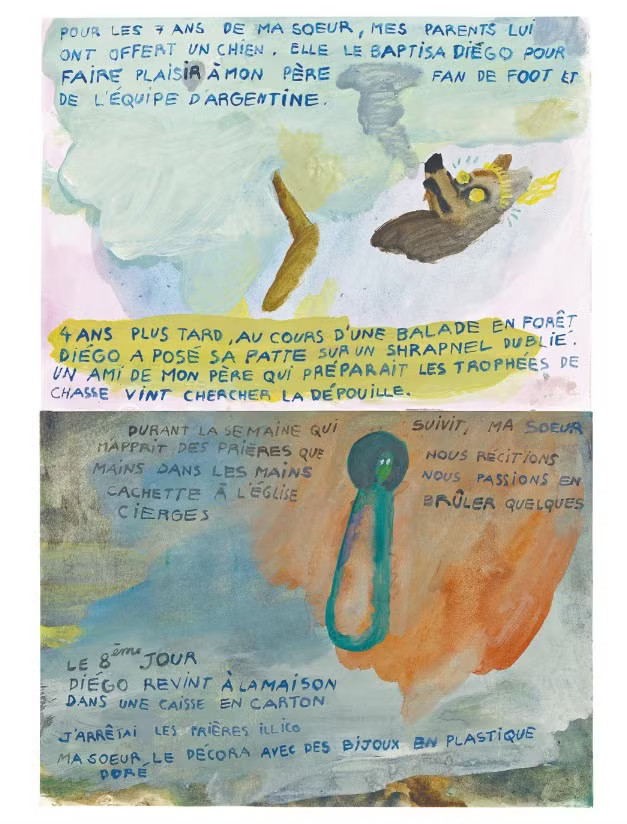 POUR LES 7 ANS DE MA SOEUR, MES PARENTS LUI
ONT OFFERT UN CHIEN. ELLE LE BAPTISA DIÉGO POUR
FAIRE PLAISIR À MON PÈRE FAN DE FOOT ET
DE L'ÉQUIPE D'ARGENTINE.
4 ANS PLUS TARD, AU COURS D'UNE BALADE EN FORÊT
DIÉGO A POSÉ SA PATTE SUR UN SHRAPNEL OUBLIÉ.
UN AMI DE MON PÈRE QUI PRÉPARAIT LES TROPHÉES DE
CHASSE VINT CHERCHER LA DÉPOUILLE.
DURANT LA SEMAINE QUI SUIVIT, MA SOEUR
M'APPRIT DES PRIÈRES QUE NOUS RÉCITIONS
MAINS DANS LES MAINS NOUS PASSIONS EN
CACHETTE À L'ÉGLISE BRÛLER QUELQUES
CIERGES
LE 8ème JOUR
DIÉGO REVINT À LA MAISON
DANS UNE CAISSE EN CARTON
J'ARRÊTAI LES PRIÈRES ILLICO
MA SOEUR LE DÉCORA AVEC DES BIJOUX EN PLASTIQUE
DORÉ